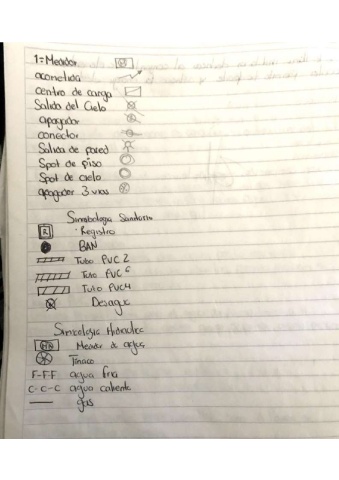 1=Medidor M
acometida
centro de carga
Salida del Cielo
apagador
conector
Salida de pared
Spot de piso
Spot de cielo
apagador 3 vias
Simbologia Sanitaria
R Registro
BAN
Tubo PVC 2
Tubo PVC 6
Tubo PVC 4
Desague
Simbologia Hidraulica
Medidor de agua
Tinaco
F-F-F agua fria
C-C-C agua caliente
gas